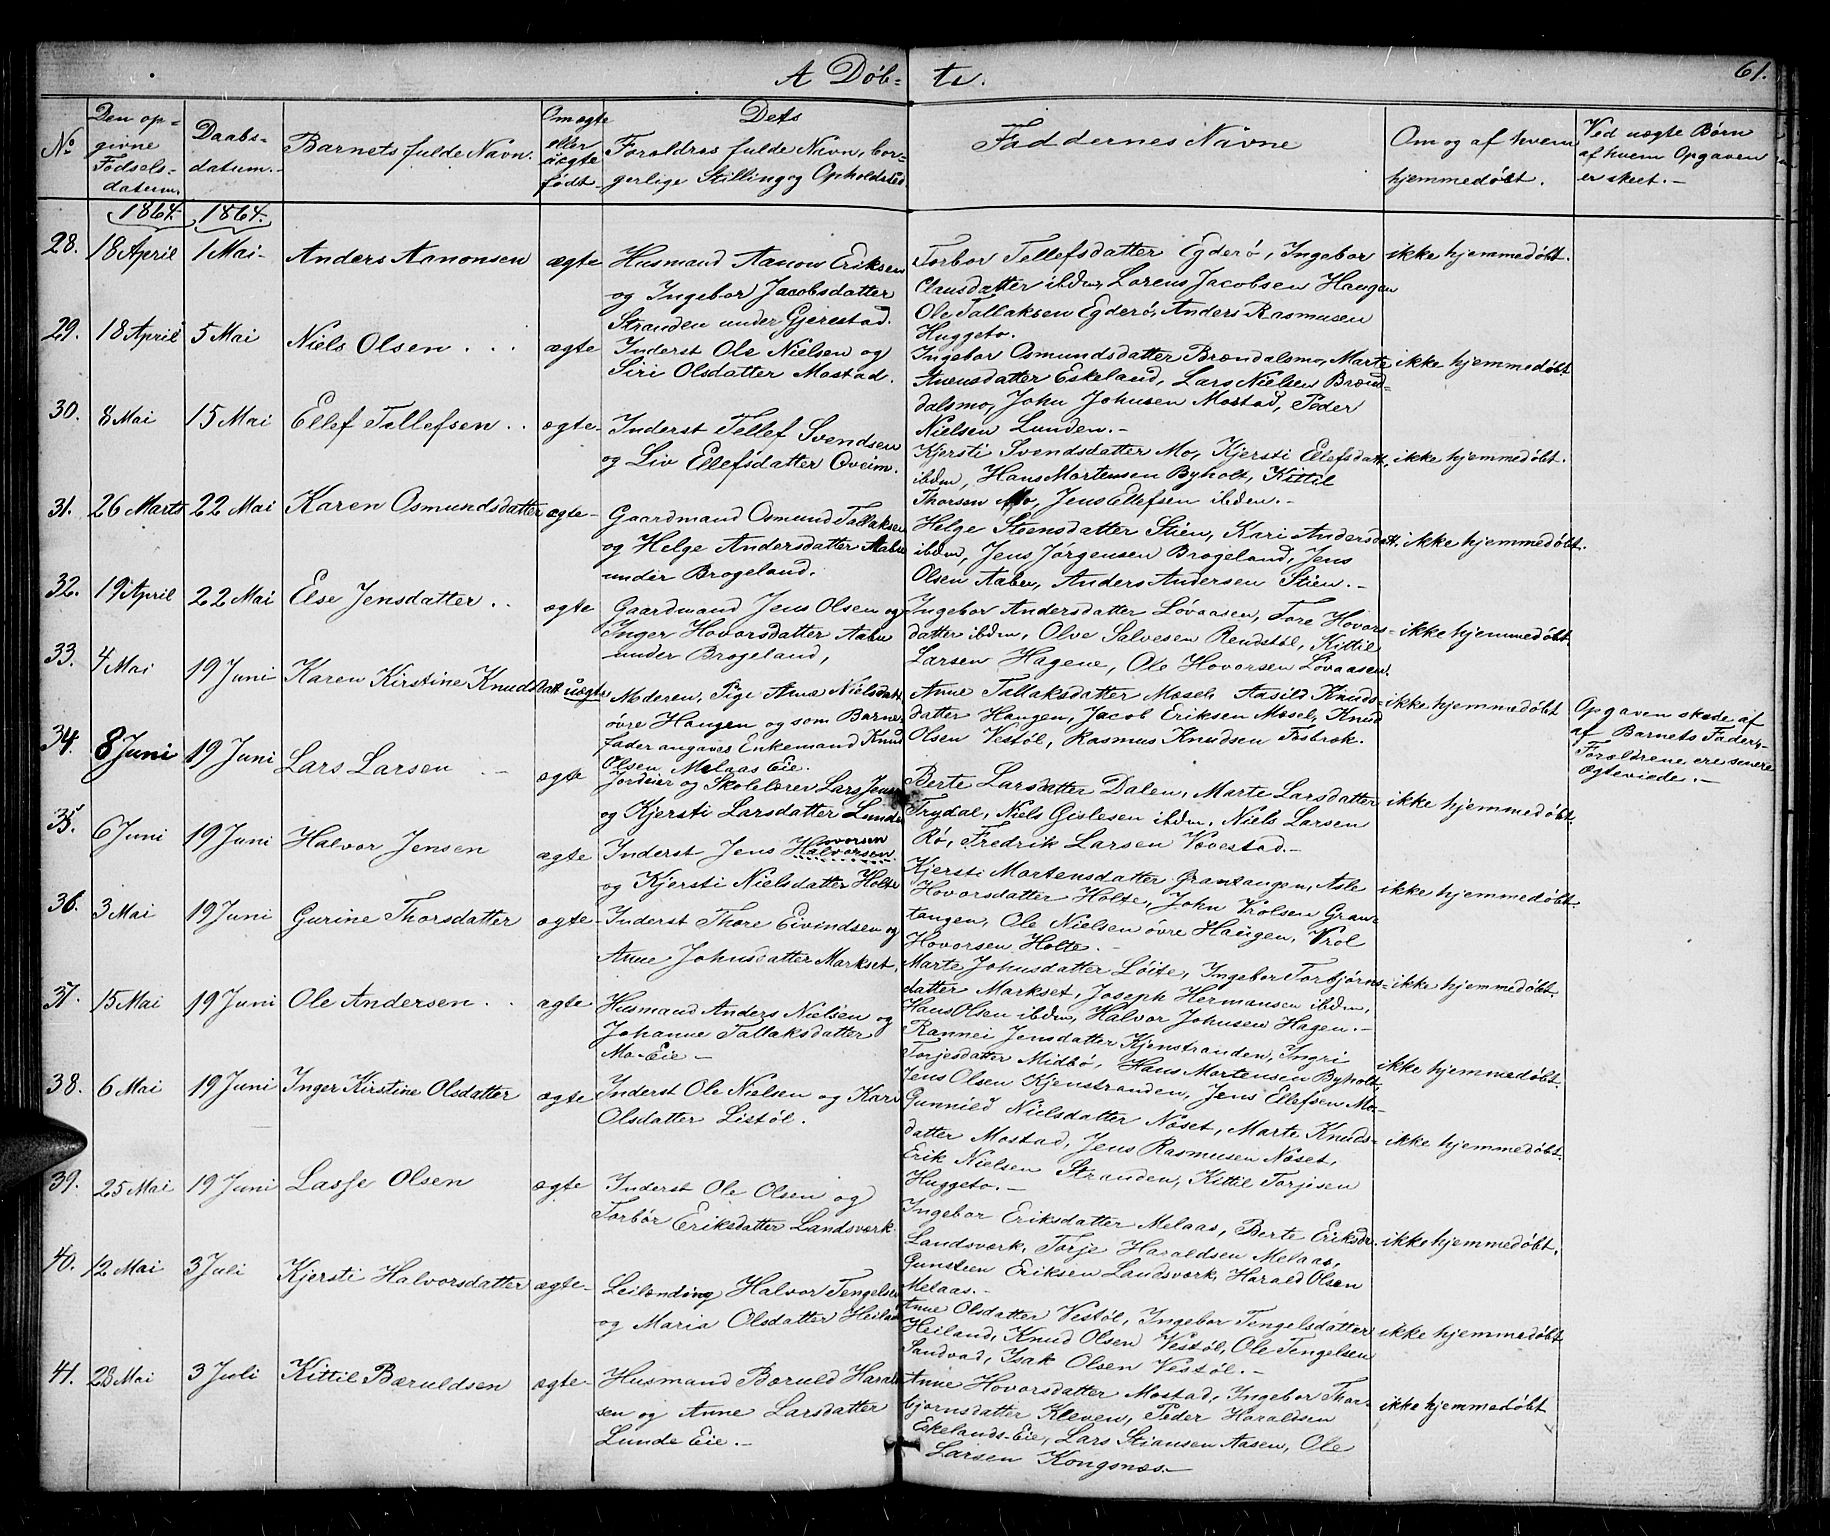 A Døb-
te.
61.
No
Den op-
givne
Fødsels-
datum.
Daabs-
datum.
Barnets fulde Navn.
Om ægte
eller
uægte
født.
Dets
Forældres fulde Navn, bor-
gerlige Stilling og Opholdsted
Faddernes Navne
Om og af hvem
hjemmedøbt.
Ved uægte Børn
af hvem Opgaven
er skeet.-
1864. 1864.
28. 18 April 1 Mai- Anders Aanonsen ægte
Husmand Aanon Eriksen
og Ingebor Jacobsdatter
Stranden under Gjerestad.
Torbor Tellefsdatter Egderø, Ingebor
Clausdatter ibdm, Lorens Jacobsen Haugen
Ole Tallaksen Egderø, Anders Rasmusen
Huggeto.
ikke hjemmedøbt.
29. 18 April 5 Mai Niels Olsen . . . ægte
Inderst Ole Nielsen og
Siri Olsdatter Mostad.
Ingebor Osmundsdatter Brøndalsmo, Marte
Svensdatter Eskeland, Lars Nielsen Brønd-
dalsmo, John Johnsen Mostad, Peder
Nielsen Lunden.-
ikke hjemmedøbt
30. 8 Mai 15 Mai Ellef Tellefsen . . ægte-
Inderst Tellef Svendsen
og Liv Ellefsdatter Qveim.
Kjersti Svendsdatter Mo, Kjersti Ellefsdatt.
ibdm, Hans Mortensen Byholt, Kittil
Thorsen Mo, Jens Ellefsen ibdem.-
ikke hjemmedøbt.
31. 26 Marts 22 Mai Karen Osmundsdatter ægte-
Gaardmand Osmund Tallaksen
og Helge Andersdatter Aabu
under Brogeland.
Helge Steensdatter Stien, Kari Andersdatt.
ibdm, Jens Jørgensen Brogeland, Jens
Olsen Aaben, Anders Andersen Stien.-
ikke hjemmedøbt.
32. 19 April 22 Mai Else Jensdatter . . ægte
Gaardmand Jens Olsen og
Inger Hovorsdatter Aabu
under Brogeland,
Ingebor Andersdatter Løvaasen, Tore Hovors-
datter ibdm, Olve Salvesen Rendstøl, Kittil
Larsen Hagene, Ole Hovorsen Lövaasen.
ikke hjemmedøbt.
33. 4 Mai 19 Juni Karen Kirstine Knudsdatt uægte
Moderen, Pige Anne Nielsdatt
øvre Haugen og som Barne-
fader angaves Enkemand Knud
Olsen Melaas Eie.
Anne Tallaksdatter Mosel, Aasild Knuds-
datter Haugen, Jacob Eriksen Mosel, Knud
Olsen Vestøl, Rasmus Knudsen Fosbrok.
ikke hjemmedøbt
Opgaven skede af
af Barnets Fader,-
Forældrene ere senere
ægteviede.-
34. 8 Juni 19 Juni Lars Larsen . - ægte
Jordeier og Skolelærer Lars Jensen
og Kjersti Larsdatter Lunde
Berte Larsdatter Dalen, Marte Larsdatter
Trydal, Niels Gislesen ibdm, Niels Larsen
Rø, Fredrik Larsen Vovestad.-
ikke hjemmedøbt.
35. 6 Juni 19 Juni Halvor Jensen ægte
Hovorsen
Inderst Jens Halvorsen
og Kjersti Nielsdatter Holte
Kjersti Mortensdatter Grantangen, Asle
Hovorsdatter Holte, John Vrolsen Gran-
tangen, Ole Nielsen øvre Haugen, Vrol
Hovorsen Holte.-
ikke hjemmedøbt.
36. 3 Mai 19 Juni Gurine Thorsdatter ægte-
Inderst Thore Eivindsen og
Anne Johnsdatter Markset,
Marte Johnsdatter Løite, Ingebor Torbjørns-
datter Markset, Joseph Hermansen ibdm,
Hans Olsen ibdm, Halvor Johnsen Hagen.-
ikke hjemmedøbt.
37. 15 Mai 19 Juni Ole Andersen . . ægte
Husmand Anders Nielsen og
Johanne Tallaksdatter
Mo-Eie-
Rannei Jensdatter Kjenstranden, Ingri
Torjesdatter Midbö, Hans Mortensen Byholt,
Jens Olsen Kjenstranden, Jens Ellefsen Mo-
ikke hjemmedøbt.
38. 6 Mai 19 Juni Inger Kirstine Olsdatter ægte
Inderst Ole Nielsen og Kari
Olsdatter Listöl.
Gunnild Nielsdatter Noset, Marte Knuds-
datter Mostad, Jens Rasmusen Noset,
Erik Nielsen Stranden, Kittil Torjesen
Huggeto.-
ikke hjemmedøbt.
39. 25 Mai 19 Juni Lasse Olsen ægte
Inderst Ole Olsen og
Torbör Eriksdatter Landsverk
Ingebor Eriksdatter Melaas, Berte Eriksdr.
Landsverk, Torje Haraldsen Melaas,
Gunsteen Eriksen Landsverk, Harald Olsen
Melaas.-
ikke hjemmedøbt.
40. 12 Mai 3 Juli Kjersti Halvorsdatter ægte-
Leilænding Halvor Tengelsen
og Maria Olsdatter Heiland
Anne Olsdatter Vestøl, Ingebor Tengelsdatter
Heiland, Knud Olsen Vestøl, Ole Tengelsen
Sandvad, Isak Olsen Vestøl.-
ikke hjemmedøbt
41. 28 Mai 3 Juli Kittil Bæruldsen ægte-
Husmand Bæruld Harald-
sen og Anne Larsdatter
Lunde Eie.-
Anne Hovorsdatter Mostad, Ingebor Thor-
bjørnsdatter Kleven, Peder Haraldsen
Eskelands-Eie, Lars Stiansen Aasen, Ole
Larsen Kongsnæs.-
ikke hjemmedøbt